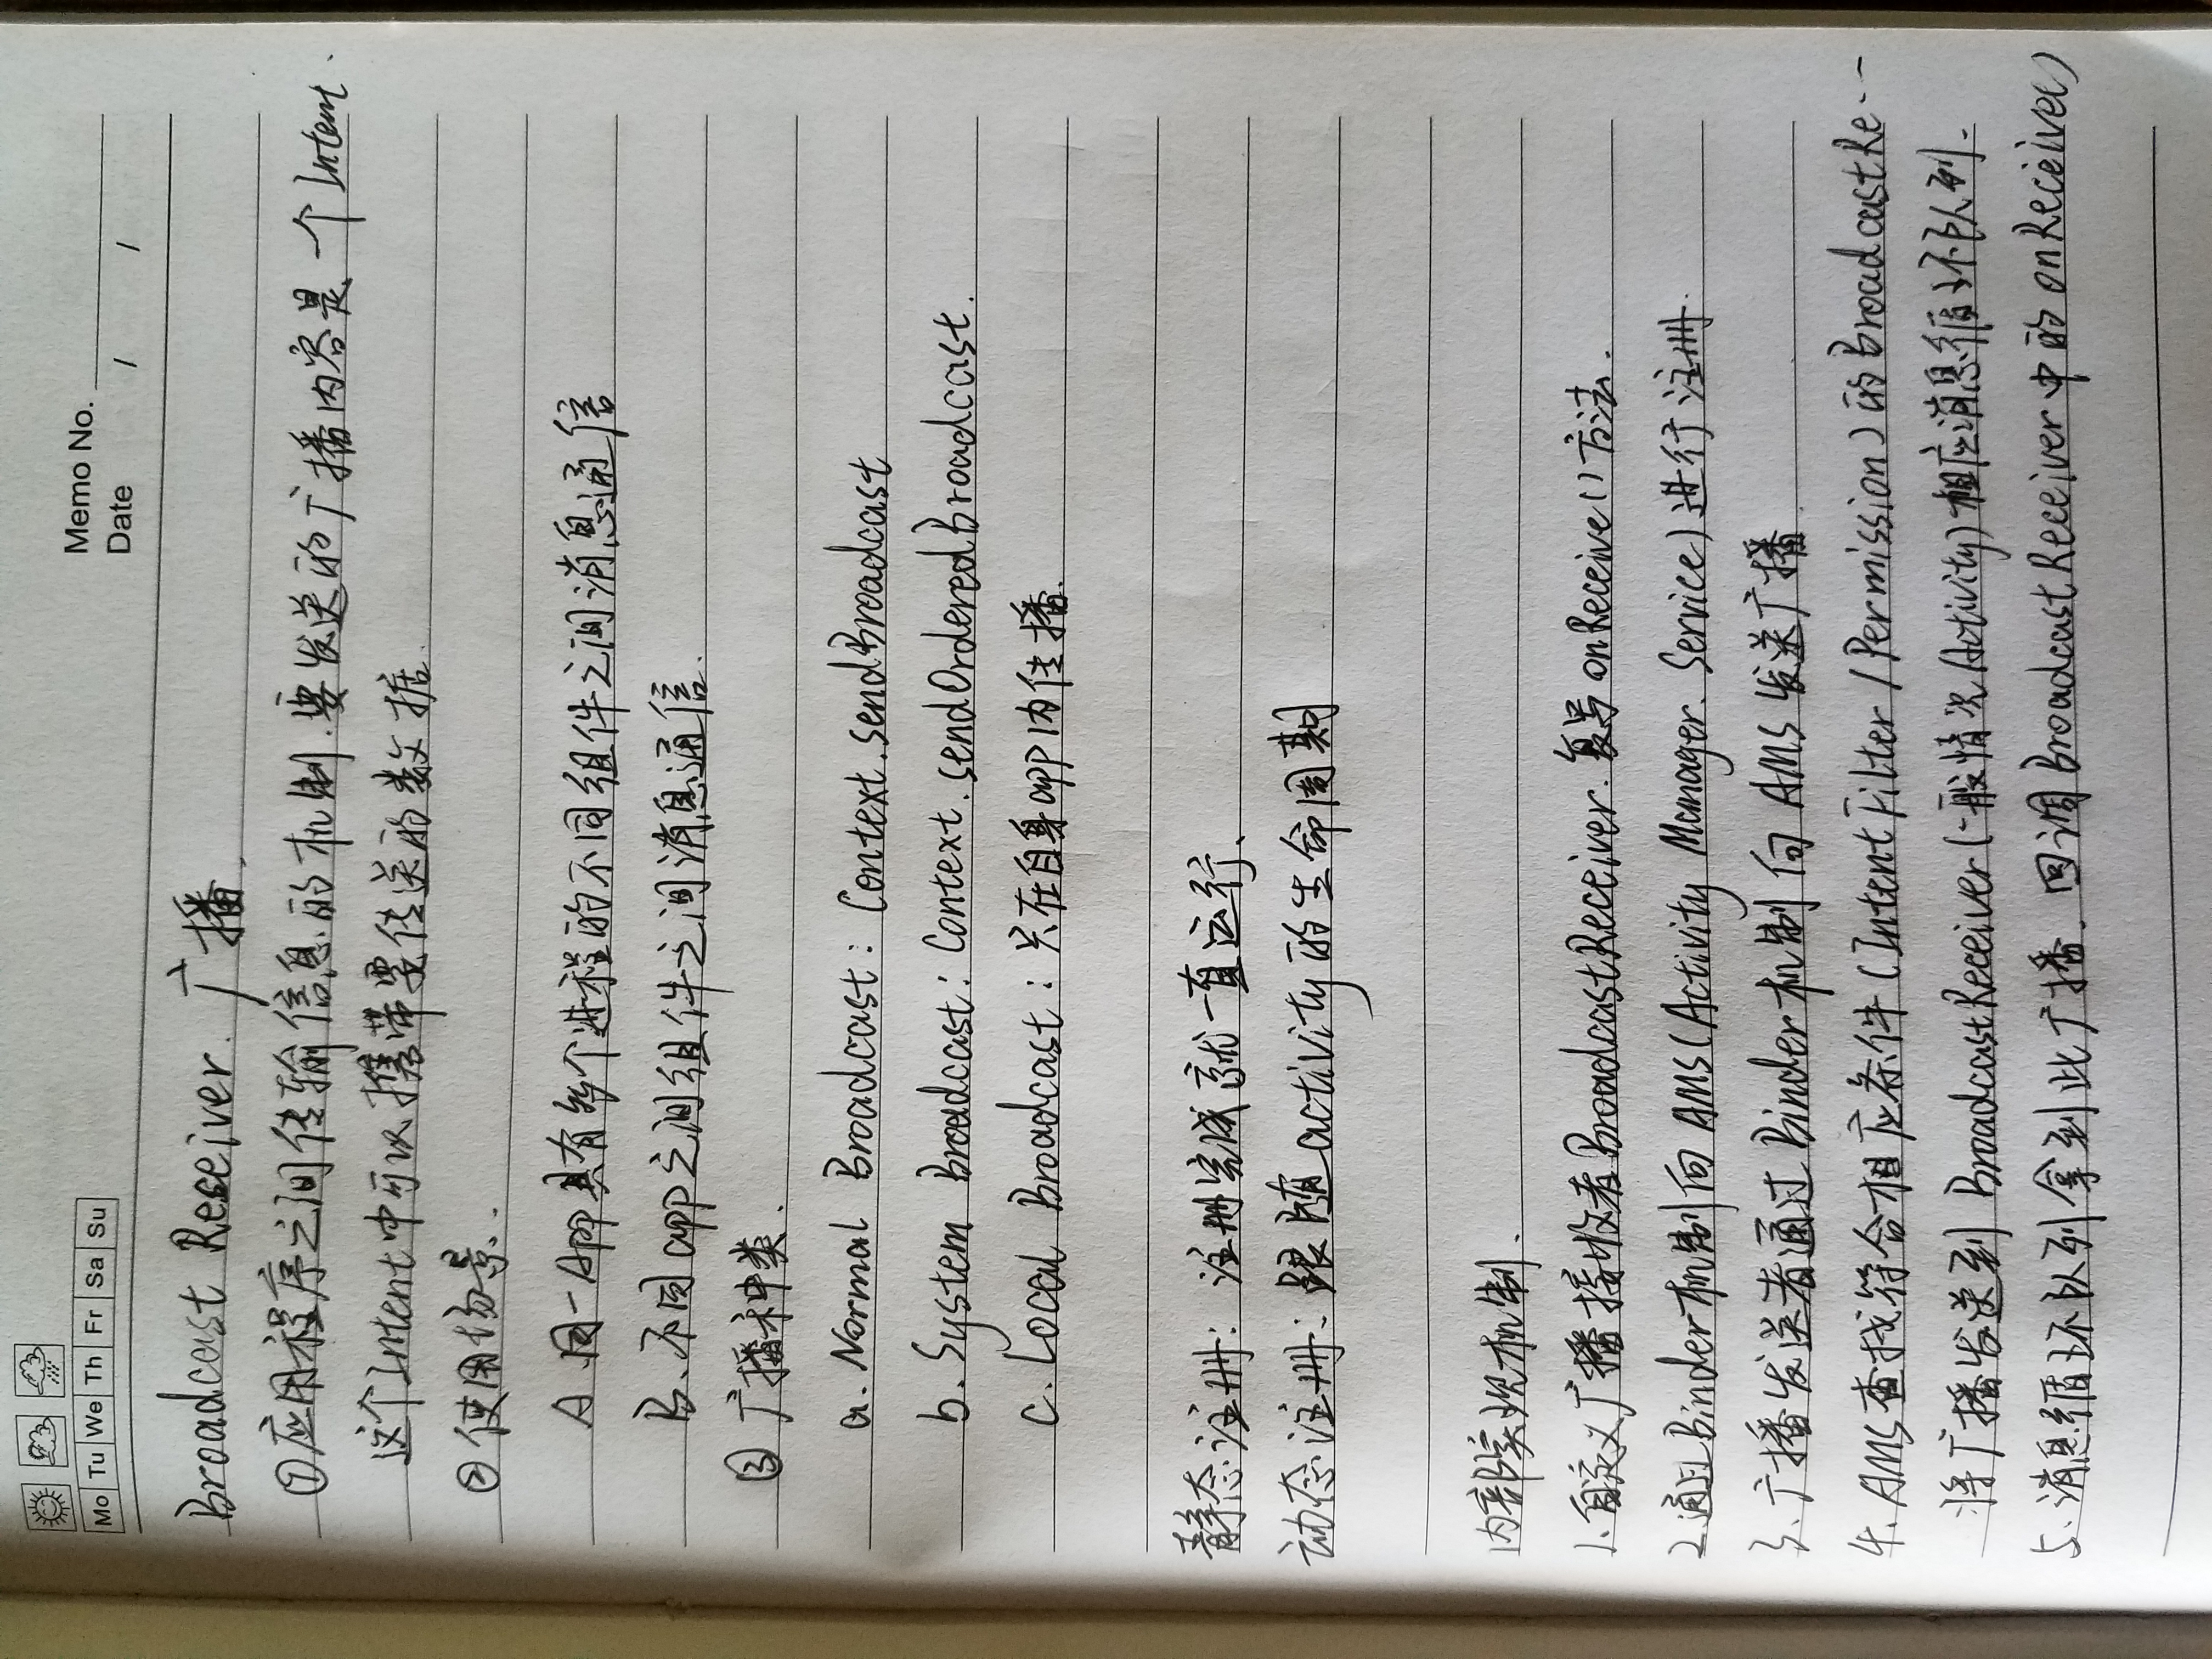 Mo Tu We Th Fr Sa Su
Memo No.
Date / /
Broadcast Receiver. 广播.
①应用程序之间传输信息的机制.要发送的广播内容是一个Intent.
这个Intent中可以携带要传送的数据.
②使用场景..
A 同一App具有多个进程的不同组件之间消息通信
B、不同app之间组件之间消息通信.
③广播种类.
a. Normal Broadcast: Context.sendBroadcast
b. System Broadcast: Context.sendOrderedBroadcast.
c. Local Broadcast: 只在自身app内传播.
静态注册: 注册完成就一直运行、
动态注册: 跟随activity的生命周期
内部实现机制.
1.自定义广播接收者BroadcastReceiver.复写onReceive()方法.
2.通过Binder机制向AMS(Activity Manager. Service)进行注册.
3.广播发送者通过Binder机制向AMS发送广播.
4.AMS查找符合相应条件(IntentFilter/Permission)的BroadcastRe...
将广播发送到BroadcastReceiver(一般情况Activity)相应消息循环队列.
5.消息循环队列拿到此广播.回调BroadcastReceiver中的onReceive()